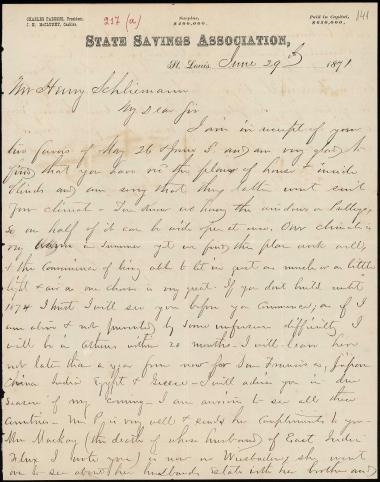 CHARLES PARSONS, President.
J. H. McCLUNEY, Cashier.
217 (a)
Surplus,
$400,000.
Paid in Capital,
$650,000.
141
STATE SAVINGS ASSOCIATION,
St. Louis, June 29th 1871
Mr Henry Schliemann
My Dear Sir
I am in receipt of your
two favors of May 26 & June 5 and am very glad to
find that you have rec the plans of house & inside
blinds and am sorry that the latter wont suit
your climate. You know we hang the windows on Pulleys,
so one half of it can be wide open at once. Our climate is
very warm in Summer yet we find the plan work well
& the convenience of being able to let in just as much or as little
light & air as one chooses is very great. If you dont build until
1874 I trust I will see you before you commence, as if I
am alive & not prevented by some unforseen difficulty I
will be in Athens within 20 months. I will leave here
not later than a year from now for San Francisco, Japan
China India Egypt & Greece. I will advise you in due
Season of my coming. I am anxious to see all these
countries. Mrs P. is very well & sends her compliments to you.
Mrs Mackay (the death of whose husband of East India
I wrote you) is now in Wiesbaden, she went
on to see about her husbands Estate with her brother and